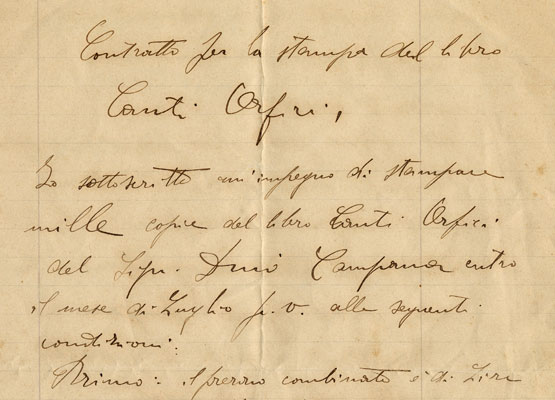 Contratto per la stampa del libro
Canti Orfici,
Io sottoscritto m'impegno di stampare
mille copie del libro Canti Orfici
del Sign. Dino Campana entro
il mese di Luglio p. v. alle seguenti
condizioni:
Primo: il prezzo combinato è di Lire